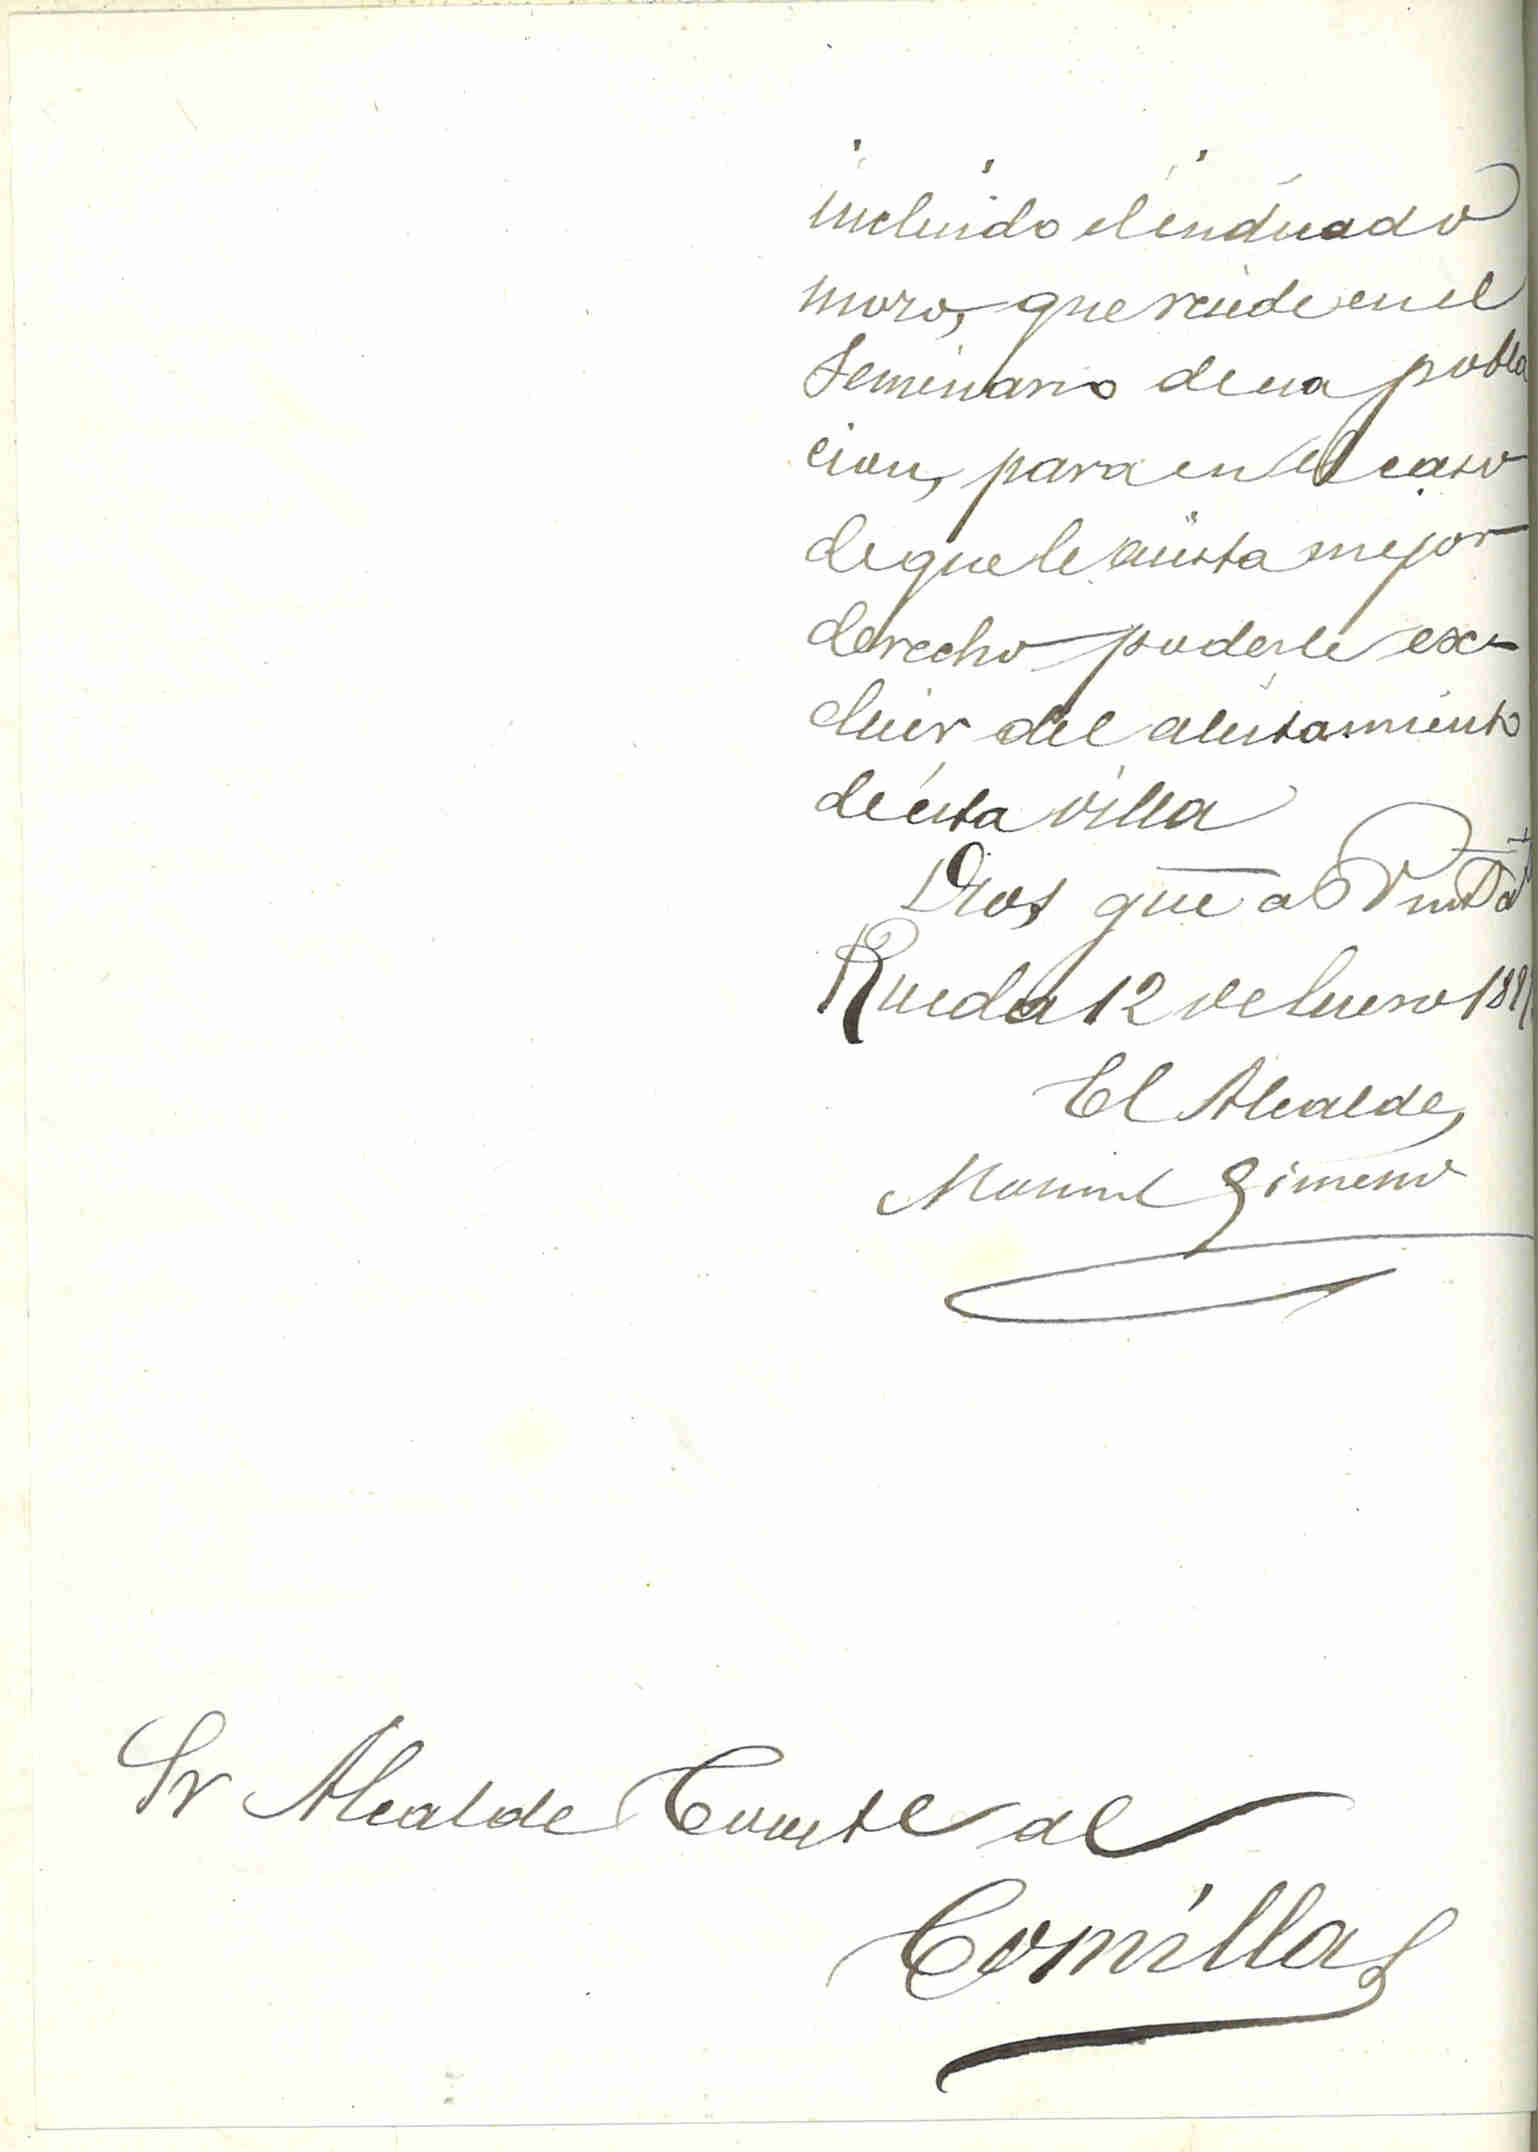 incluido el indicado
mozo, que reside en el
Seminario de esa pobla
cion, para en el caso
de que le asista mejor
derecho poderle ex-
cluir del alistamiento
de ésta villa
Dios gue a V m.s a.s
Rueda 12 de Enero 189
El Alcalde,
Manuel Gimeno
Sr Alcalde Const de
Comillas